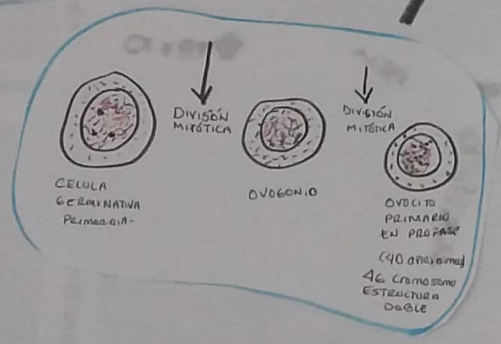 DIVISIÓN
MITÓTICA
DIVISIÓN
MITÓTICA
CELULA
GERMINATIVA
PRIMORDIA-
OVOGONIO
OVOCITO
PRIMARIO
EN PROFASE
(40 años o mas)
46 Cromosomo
ESTRUCTURA
DOBLE